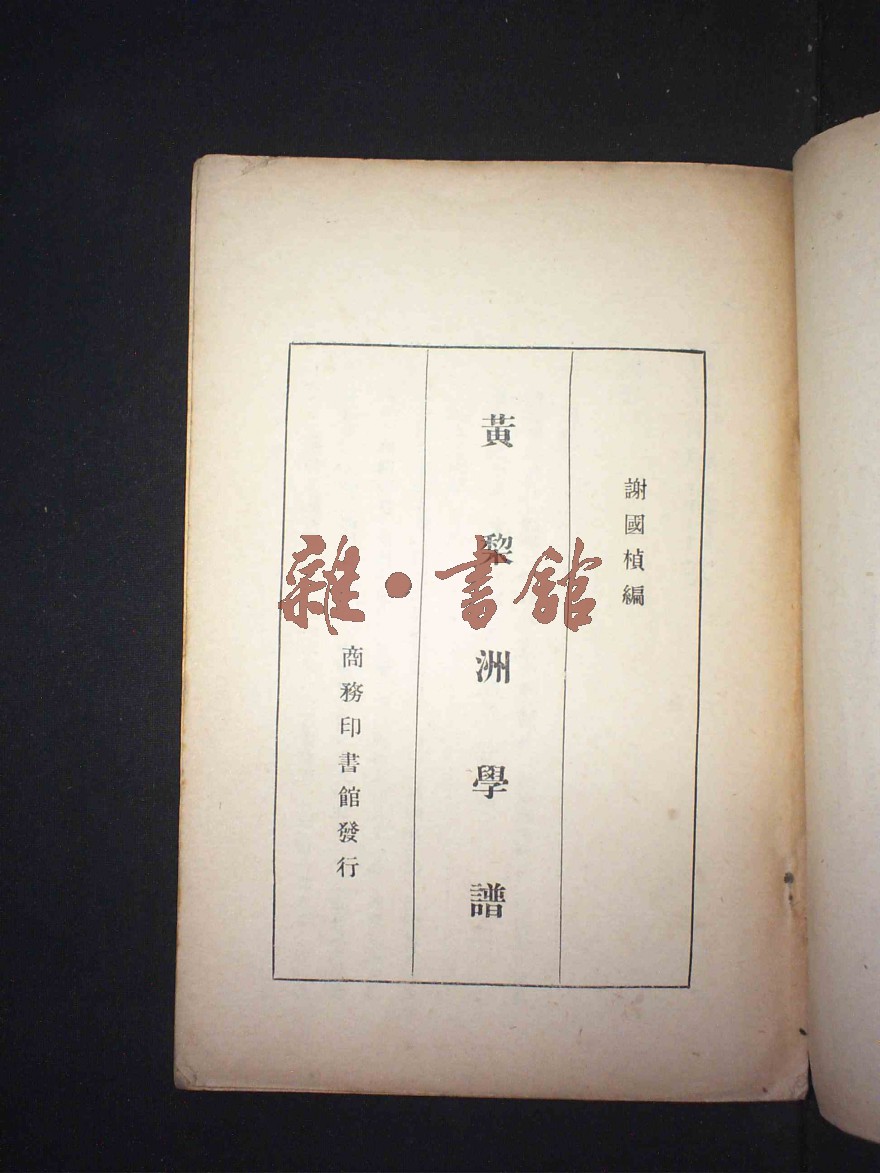 謝國楨編
黃黎洲學譜
商務印書館發行
雜·書館